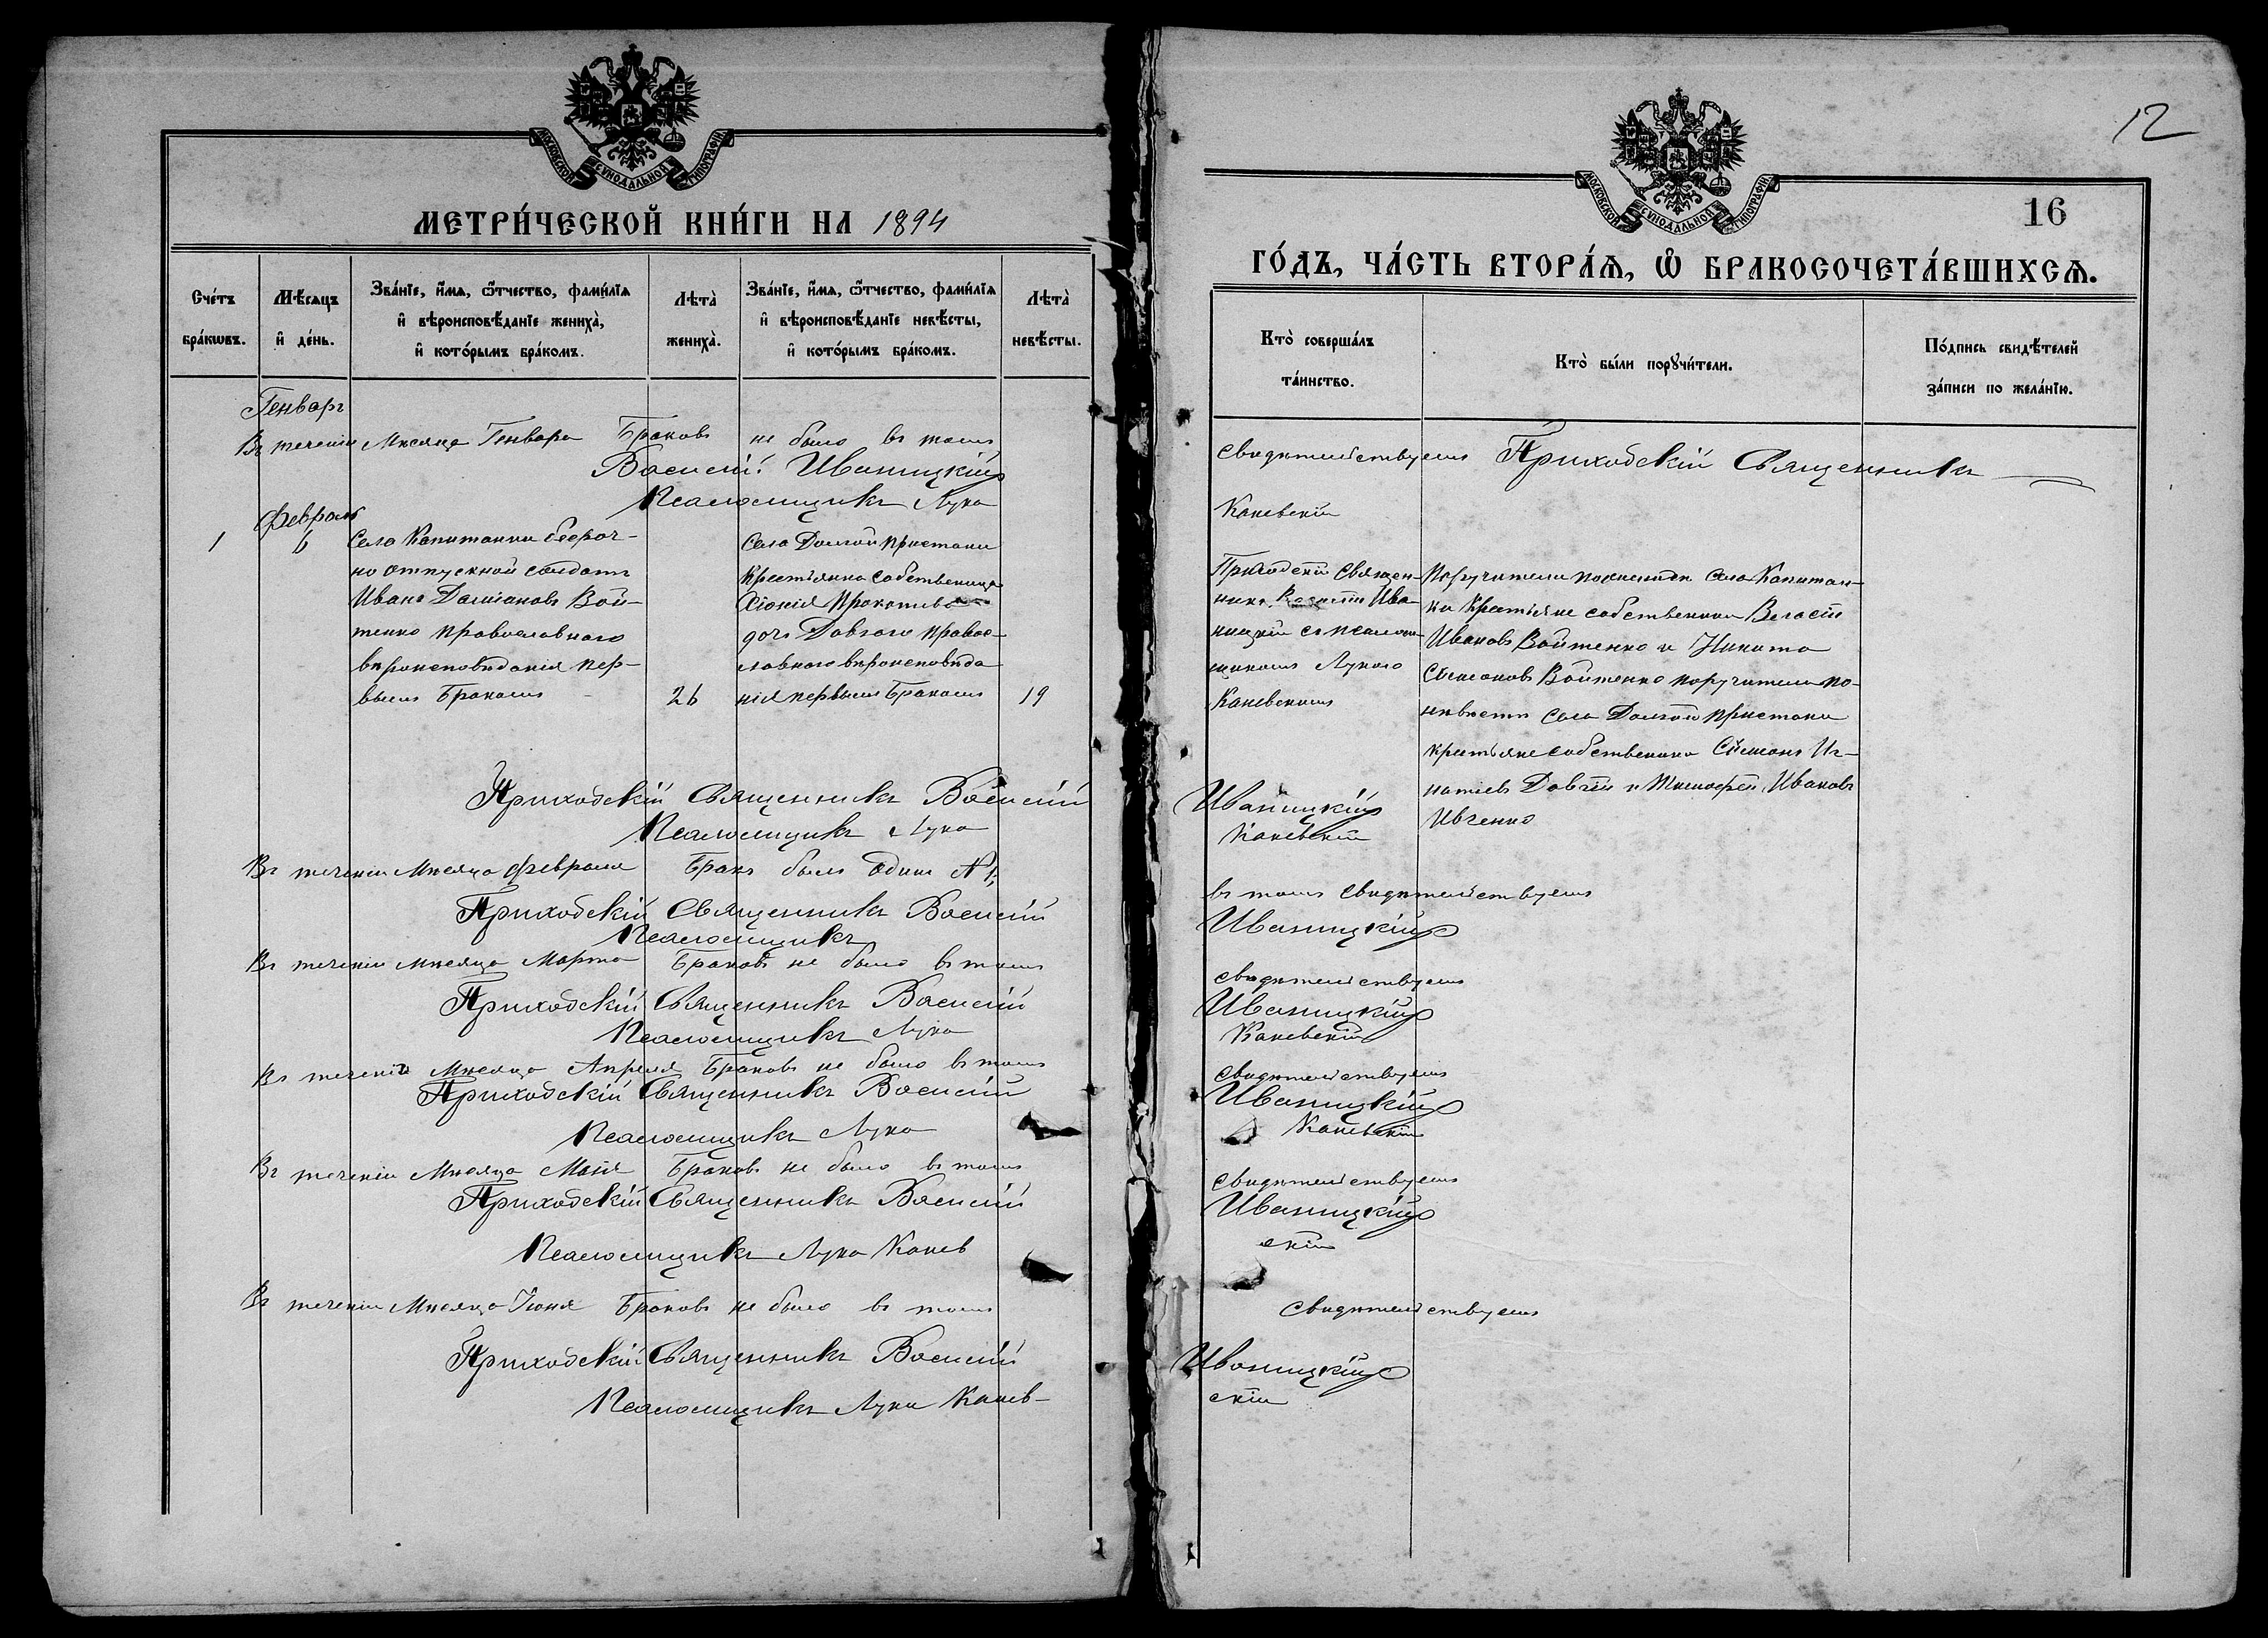 МОСКОВСКОЙ СѴНОДАЛЬНОЙ ТИПОГРАФІИ
МЕТРИ́ЧЕСКОЙ КНИ́ГИ НА 1894
Сче́тъ бра́кѡвъ.
Мѣ́сяцъ и҆ де́нь.
Зва́нїе, и҆́мя, ѻ҆́тчество, фами́лїя
и҆ вѣроисповѣ́данїе жениха̀,
и҆ кото́рымъ бра́комъ.
Лѣта̀ жениха̀.
Зва́нїе, и҆́мя, ѻ҆́тчество, фами́лїя
и҆ вѣроисповѣ́данїе невѣ́сты,
и҆ кото́рымъ бра́комъ.
Лѣта̀ невѣ́сты.
Генварь
Въ теченіи Мѣсяца Генваря Браковъ не было въ томъ
Василій Иваницкій
Псаломщикъ Лука
Февраль
1
6
Села Капитанки безсроч-
но отпускной солдатъ
Иванъ Даміановъ Вой-
тенко православнаго
вѣроисповѣданія пер-
вымъ Бракомъ
26
Села Долгой Пристани
Крестьянка собственица
Хіонія Прокопиева
дочь Довгого правос-
лавного вѣроисповѣда
нія первымъ Бракомъ
19
Приходскій Священникъ Василій
Псаломщикъ Лука
Въ теченіи Мѣсяца Февраля Бракъ былъ Одинъ № 1,
Приходскій Священникъ Василій
Псаломщикъ
Въ теченіи Мѣсяца Марта Браковъ не было въ томъ
Приходскій Священникъ Василій
Псаломщикъ Лука
Въ теченіи Мѣсяца Апреля Браковъ не было въ томъ
Приходскій Священникъ Василій
Псаломщикъ Лука
Въ теченіи Мѣсяца Маія Браковъ не было въ томъ
Приходскій Священникъ Василій
Псаломщикъ Лука Канев
Въ теченіи Мѣсяца Іюня Браковъ не было въ томъ
Приходскій Священникъ Василій
Псаломщикъ Лука Канев-
12
МОСКОВСКОЙ СѴНОДАЛЬНОЙ ТИПОГРАФІИ
16
ГО́ДЪ, ЧА́СТЬ ВТОРА́Я, Ѡ҆ БРАКОСОЧЕТА́ВШИХСЯ.
Кто̀ соверша́лъ
та́инство.
Кто̀ бы́ли порꙋчи́тели.
По́дпись свидѣ́телей
за́писи по жела́нїю.
свидѣтельствуемъ Приходскій Священникъ
Каневскій
Приходскій Священ-
никъ Василій Ива
ницкій съ псалом
щикомъ Лукою
Каневскимъ
Поручители по женихѣ Села Капитан-
ки Крестьяне собственики Власій
Ивановъ Войтенко и Никита
Симеоновъ Войтенко поручители по-
невѣстѣ Села Долгой Пристани
крестьяне собственики Симеонъ Иг-
натіевъ Довгій и Тимофей Ивановъ
Ивченко
Иваницкій
Каневскій
въ томъ свидѣтельствуемъ
Иваницкій
свидѣтельствуемъ
Иваницкій
Каневскій
свидѣтельствуемъ
Иваницкій
Каневскій
свидѣтельствуемъ
Иваницкій
скій
свидѣтельствуемъ
Иваницкій
скій